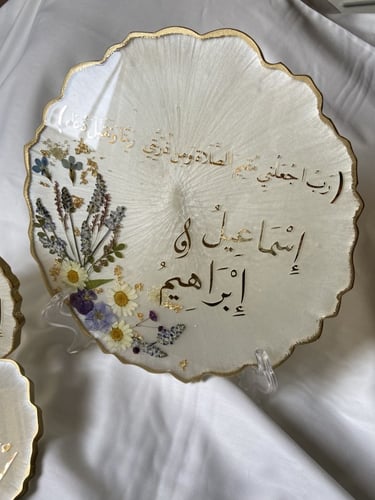 (رَبِّ اجْعَلْنِي مُقِيمَ الصَّلَاةِ وَمِن ذُرِّيَّتِي رَبَّنَا وَتَقَبَّلْ دُعَاءِ)
إِسْمَاعِيلُ و
إِبْرَاهِيمُ